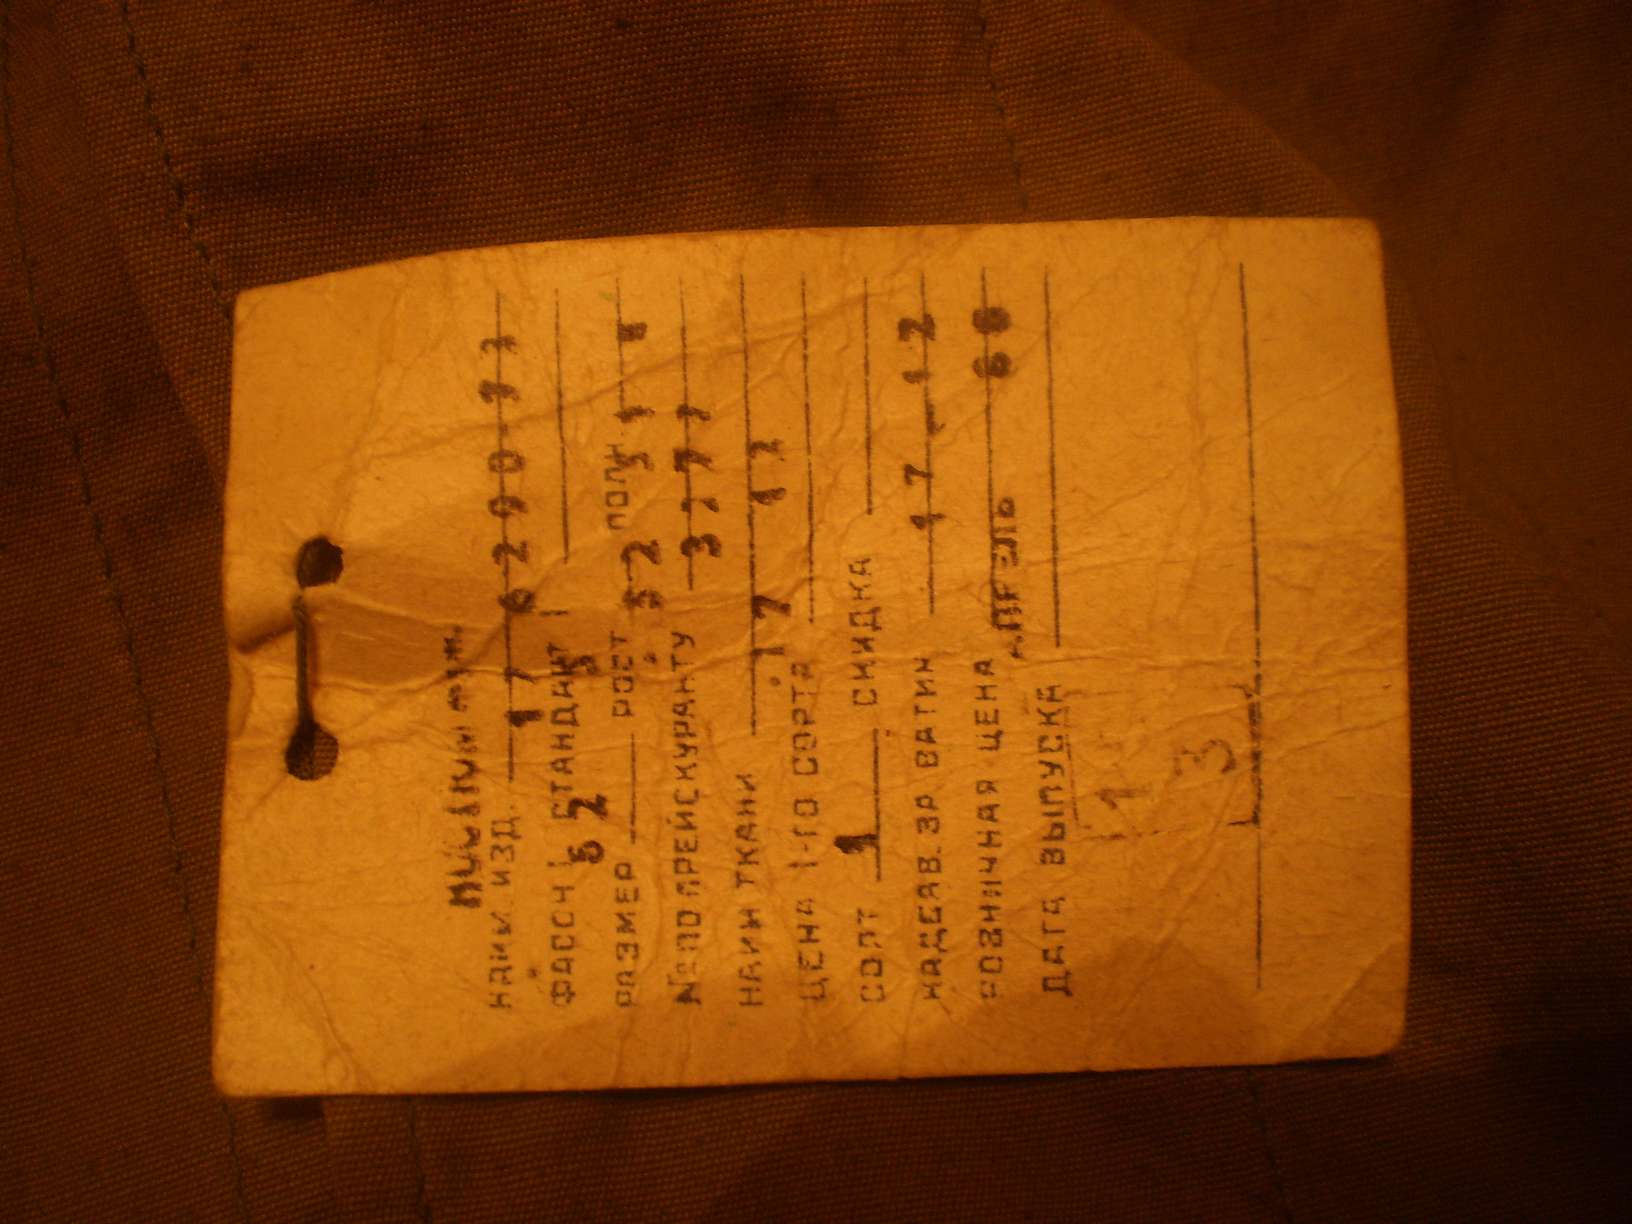 НАИМ. ИЗД.
17 6290-73
ФАСОН СТАНДАРТ
52 5
РАЗМЕР РОСТ ПОЛН.
52 51
№ ПО ПРЕЙСКУРАНТУ 3377
НАИМ ТКАНИ
17 12
ЦЕНА 1-ГО СОРТА
СОРТ 1 СКИДКА
НАДБАВ. ЗА ВАТИН 17-12
РОЗНИЧНАЯ ЦЕНА
АПРЕЛЬ
ДАТА ВЫПУСКА
1
3